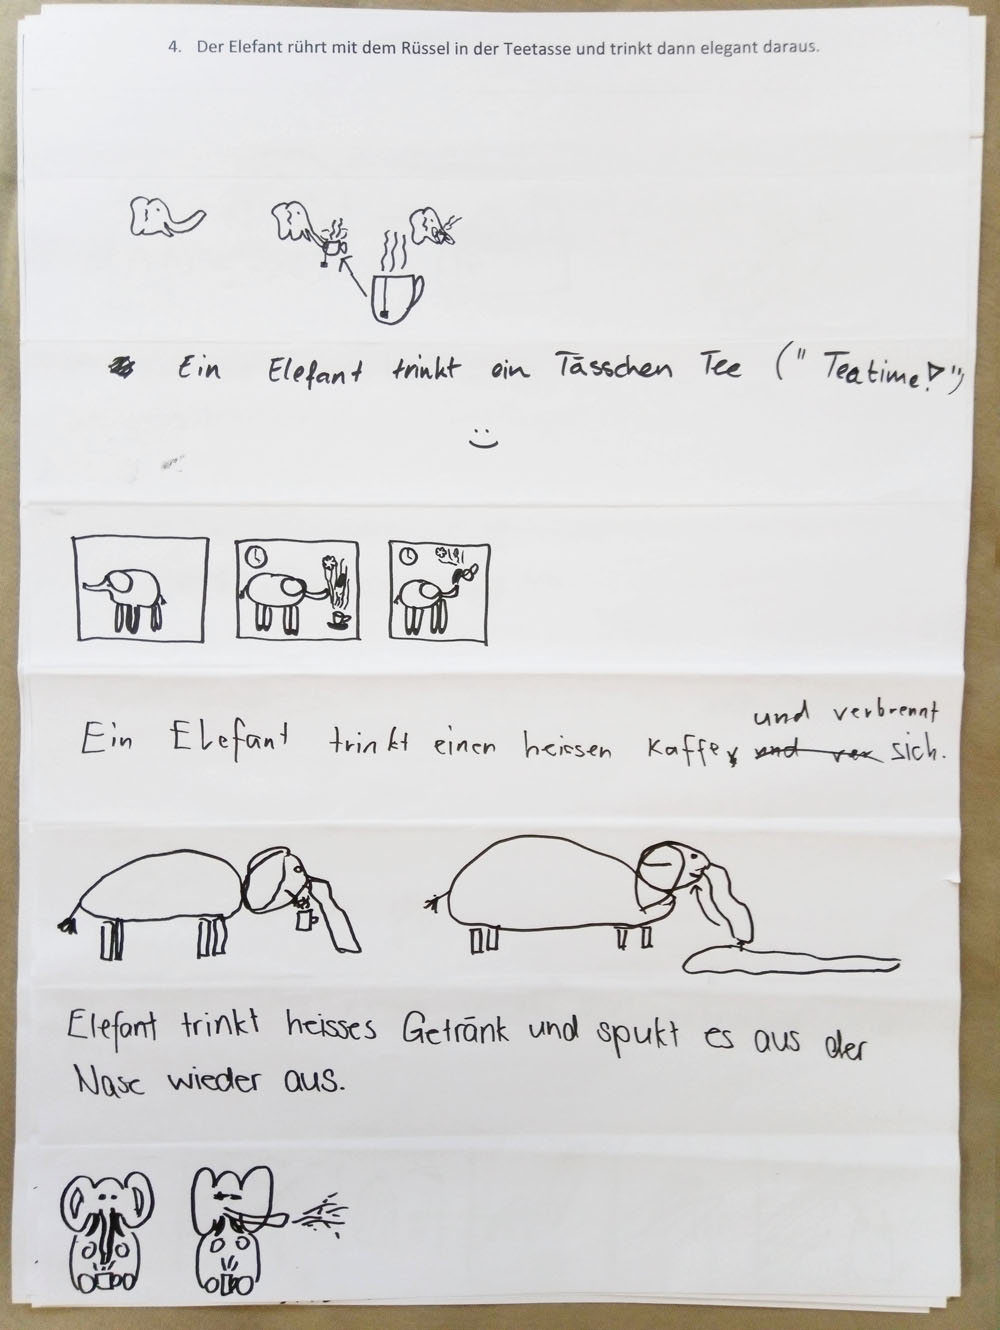 4. Der Elefant rührt mit dem Rüssel in der Teetasse und trinkt dann elegant daraus.
Ein Elefant trinkt ein Tässchen Tee ("Teatime!")
Ein Elefant trinkt einen heissen Kaffe, und verbrennt sich.
Elefant trinkt heisses Getränk und spukt es aus der
Nase wieder aus.